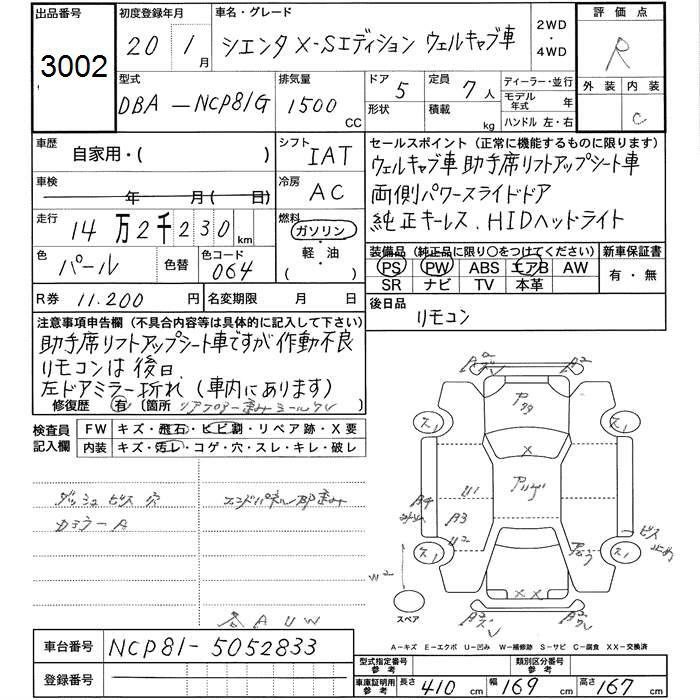 出品番号
3002
初度登録年月
20 1月
車名・グレード
シエンタ X-Sエディション ウェルキャブ車
2WD
・
4WD
評価点
R
外装 内装
C
型式
DBA-NCP81G
排気量
1500 CC
ドア 5
形状
定員 7人
積載 kg
ディーラー・並行
モデル年式 年
ハンドル 左・右
車歴
自家用・( )
シフト
IAT
車検
年 月(日)
冷房
AC
走行
14万2千230km
燃料
ガソリン
・
軽・油
( )
色
パール
色替
色コード
064
R券 11.200円
名変期限 月 日
セールスポイント(正常に機能するものに限ります)
ウェルキャブ車 助手席リフトアップシート車
両側パワースライドドア
純正キーレス、HIDヘッドライト
装備品(純正品に限り○をつけてください)
PS PW ABS エアB AW
SR ナビ TV 本革
新車保証書
有・無
後日品
リモコン
注意事項申告欄(不具合内容等は具体的に記入して下さい)
助手席リフトアップシート車ですが作動不良
リモコンは後日
左ドアミラー折れ(車内にあります)
修復歴 有 (箇所
検査員
記入欄
FW キズ・飛石・ヒビ割・リペア跡・X要
内装 キズ・汚レ・コゲ・穴・スレ・キレ・破レ
ダッシュ ビス 穴
カラーA
エンドパネル
A U W
ビス
止め
スペア
車台番号 NCP81-5052833
登録番号
A-キズ E-エクボ U-凹み W-補修跡 S-サビ C-腐食 XX-交換済
型式指定番号
参考
類別区分番号
参考
車庫証明用
参考
長さ 410 cm 幅 169 cm 高さ 167 cm